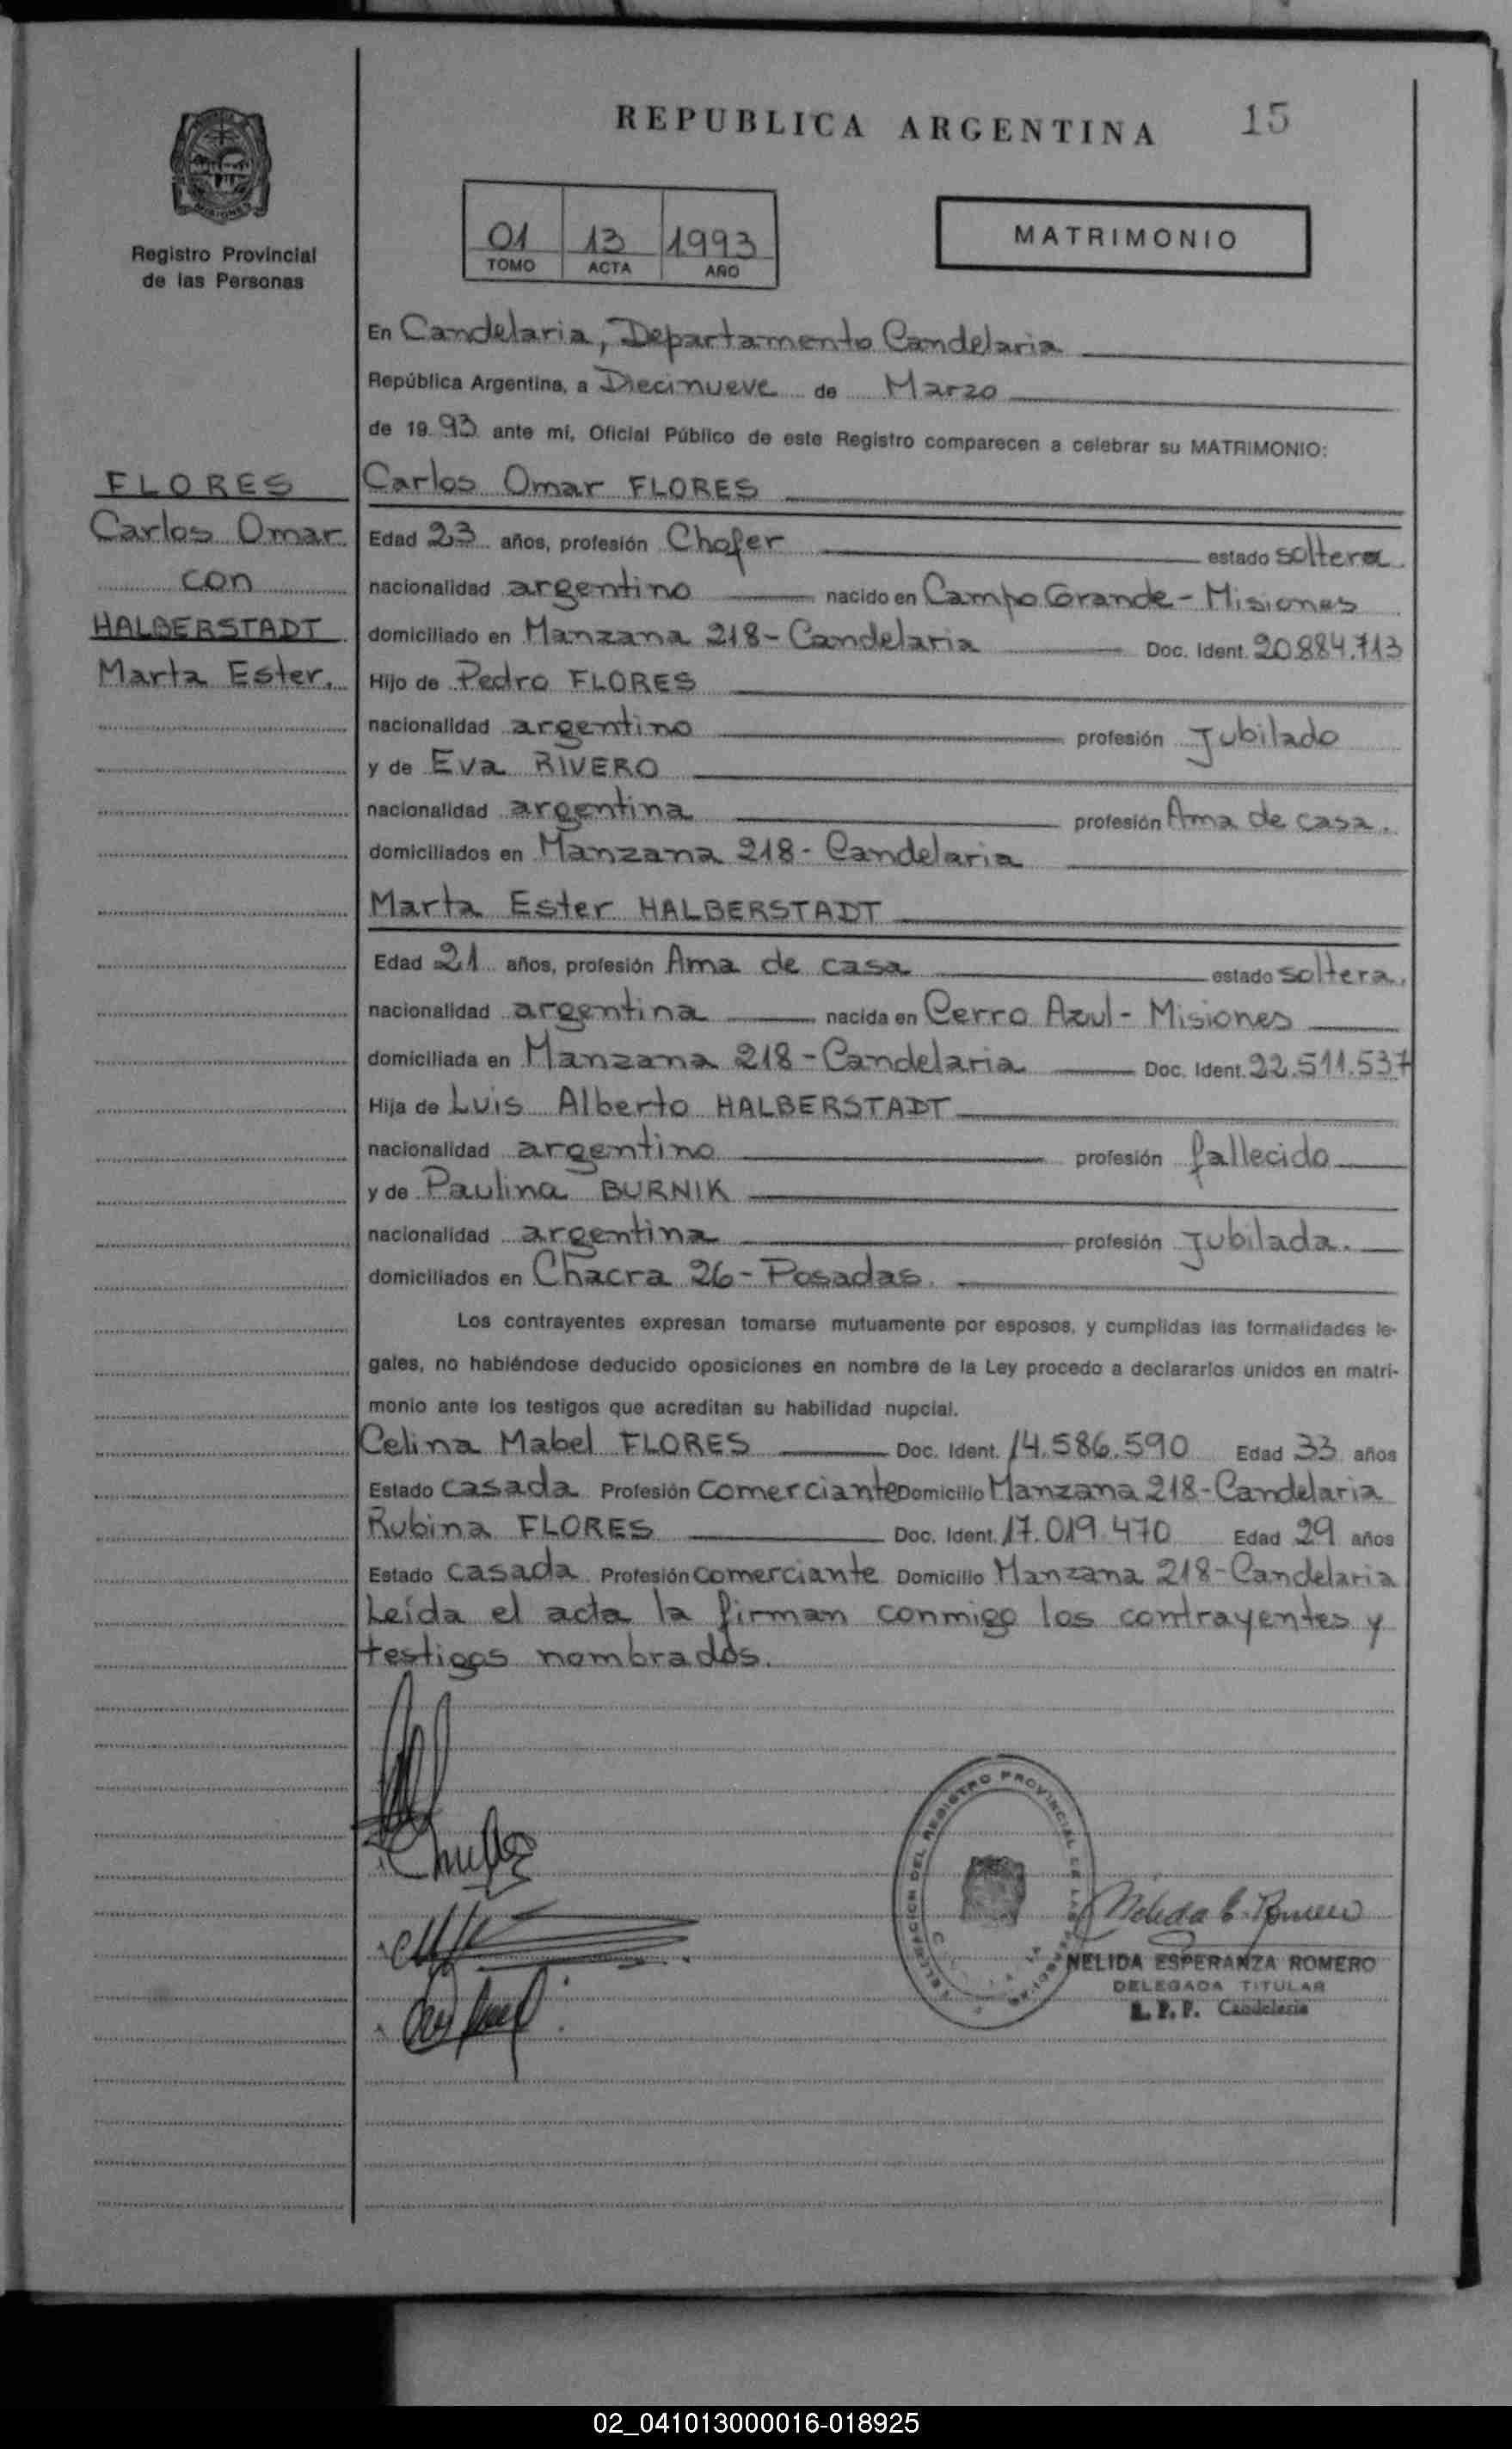 REPUBLICA ARGENTINA 15
MISIONES
Registro Provincial
de las Personas
01 13 1993
TOMO ACTA AÑO
MATRIMONIO
En Candelaria, Departamento Candelaria
República Argentina, a Diecinueve de Marzo
de 1993 ante mí, Oficial Público de este Registro comparecen a celebrar su MATRIMONIO:
FLORES
Carlos Omar
con
HALBERSTADT
Marta Ester.
Carlos Omar FLORES
Edad 23 años, profesión Chofer estado soltera
nacionalidad argentino nacido en Campo Grande - Misiones
domiciliado en Manzana 218 - Candelaria Doc. Ident. 20.884.713
Hijo de Pedro FLORES
nacionalidad argentino profesión Jubilado
y de Eva RIVERO
nacionalidad argentina profesión Ama de casa.
domiciliados en Manzana 218 - Candelaria
Marta Ester HALBERSTADT
Edad 21 años, profesión Ama de casa estado soltera.
nacionalidad argentina nacida en Cerro Azul - Misiones
domiciliada en Manzana 218 - Candelaria Doc. Ident. 22.511.537
Hija de Luis Alberto HALBERSTADT
nacionalidad argentino profesión fallecido
y de Paulina BURNIK
nacionalidad argentina profesión Jubilada.
domiciliados en Chacra 26 - Posadas.
Los contrayentes expresan tomarse mutuamente por esposos, y cumplidas las formalidades le-
gales, no habiéndose deducido oposiciones en nombre de la Ley procedo a declararlos unidos en matri-
monio ante los testigos que acreditan su habilidad nupcial.
Celina Mabel FLORES Doc. Ident. 14.586.590 Edad 33 años
Estado casada Profesión comerciante Domicilio Manzana 218 - Candelaria
Rubina FLORES Doc. Ident. 17.019.470 Edad 29 años
Estado casada Profesión comerciante Domicilio Manzana 218 - Candelaria
Leída el acta la firman conmigo los contrayentes y
testigos nombrados.
DELEGACION DEL REGISTRO PROVINCIAL DE LAS PERSONAS
Nélida E. Romero
NELIDA ESPERANZA ROMERO
DELEGADA TITULAR
R. P. P. Candelaria
02_041013000016-018925